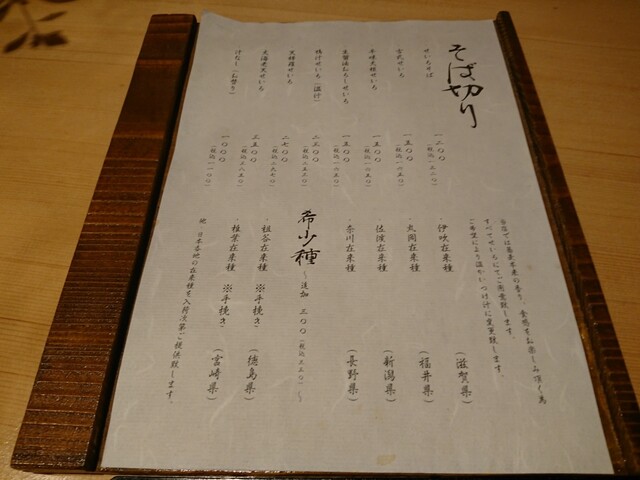 そば切り
せいろそば
一二〇〇
(税込一三二〇)
古式せいろ
一五〇〇
(税込一六五〇)
辛味大根せいろ
一五〇〇
(税込一六五〇)
生醤油おろしせいろ
一五〇〇
(税込一六五〇)
鴨汁せいろ(温汁)
二三〇〇
(税込二五三〇)
天種籠せいろ
二七〇〇
(税込二九七〇)
大海老天せいろ
三五〇〇
(税込三八五〇)
一〇〇〇
(税込一一〇〇)
当店では蕎麦本来の香り、食感をお楽しみ頂く為
すべてせいろにてご用意致します。
ご希望により温かいつけ汁に変更致します。
・伊吹在来種 (滋賀県)
・丸岡在来種 (福井県)
・佐渡在来種 (新潟県)
・奈川在来種 (長野県)
希少種 ~追加 三〇〇(税込三三〇)~
・祖谷在来種 ※手挽き (徳島県)
・椎葉在来種 ※手挽き (宮崎県)
他 日本各地の在来種を入荷次第ご提供致します。